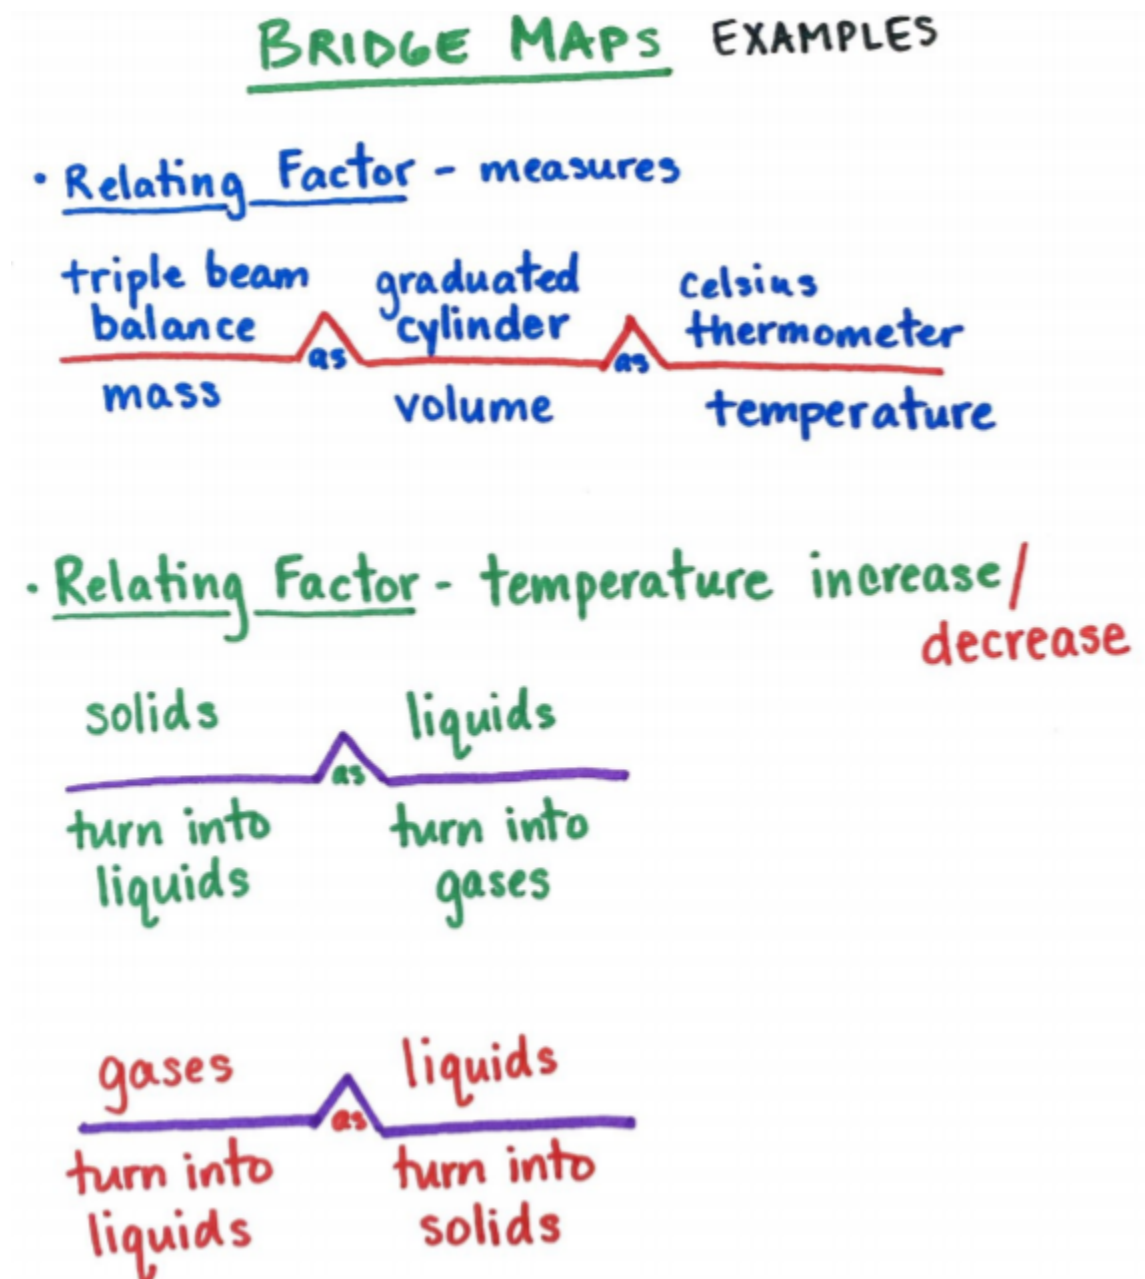 BRIDGE MAPS EXAMPLES
• Relating Factor - measures
triple beam balance
as
graduated cylinder
as
celsius thermometer
mass
volume
temperature
• Relating Factor - temperature increase/
decrease
solids
as
liquids
turn into liquids
turn into gases
gases
as
liquids
turn into liquids
turn into solids